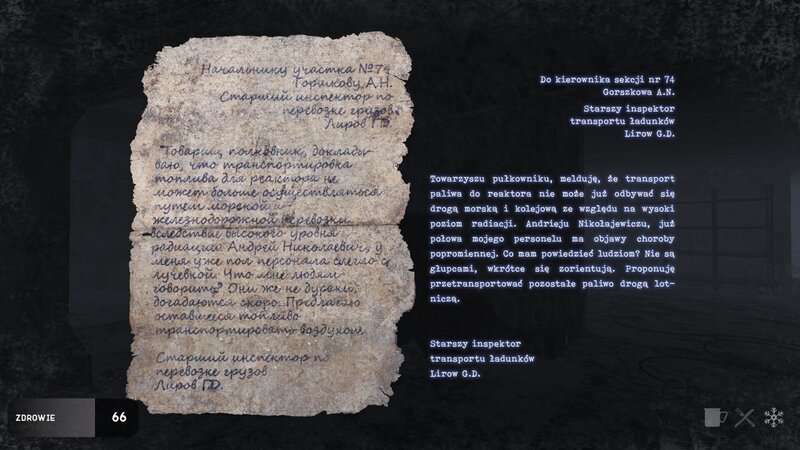 Начальнику участка №74
Горшкову А.Н.
Старший инспектор по
перевозке грузов
Лиров Г.Д.
Товарищ полковник, доклады-
ваю, что транспортировка
топлива для реактора не
может больше осуществляться
путем морской и
железнодорожной перевозки
вследствие высокого уровня
радиации. Андрей Николаевич, у
меня уже пол персонала слегло с
лучевкой. Что мне людям
говорить? Они же не дураки,
догадаются скоро. Предлагаю
оставшееся топливо
транспортировать воздухом.
Старший инспектор по
перевозке грузов
Лиров Г.Д.
Do kierownika sekcji nr 74
Gorszkowa A.N.
Starszy inspektor
transportu ładunków
Lirow G.D.
Towarzyszu pułkowniku, melduję, że transport
paliwa do reaktora nie może już odbywać się
drogą morską i kolejową ze względu na wysoki
poziom radiacji. Andrieju Nikołajewiczu, już
połowa mojego personelu ma objawy choroby
popromiennej. Co mam powiedzieć ludziom? Nie są
głupcami, wkrótce się zorientują. Proponuję
przetransportować pozostałe paliwo drogą lot-
niczą.
Starszy inspektor
transportu ładunków
Lirow G.D.
ZDROWIE 66